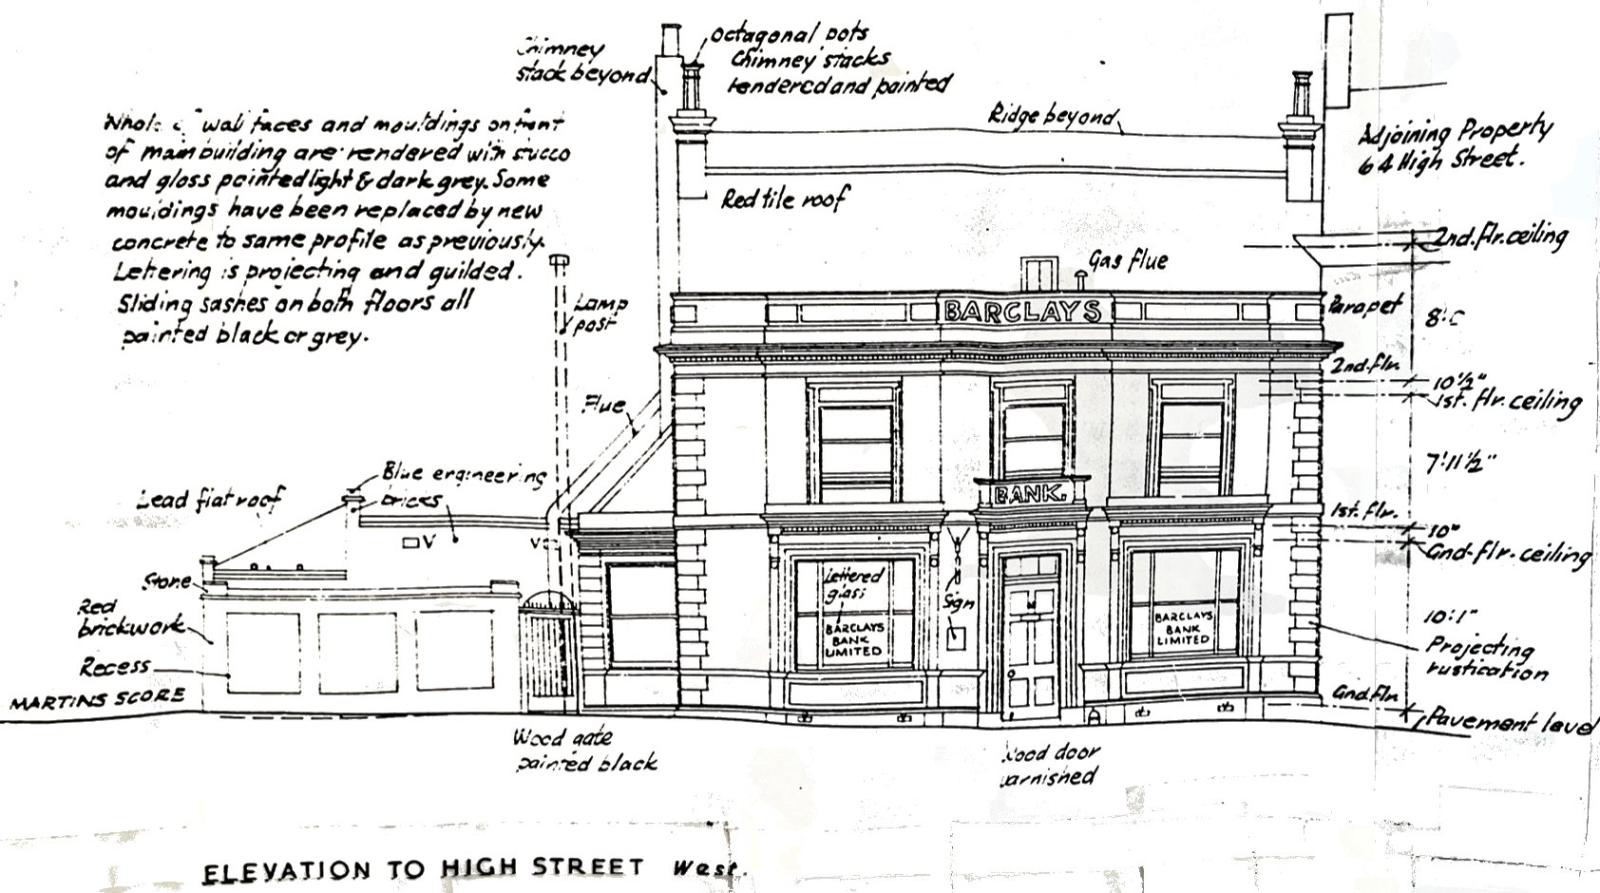 Chimney
stack beyond
Octagonal pots
Chimney stacks
rendered and painted
Ridge beyond
Adjoining Property
64 High Street.
Whole of wall faces and mouldings on front
of main building are rendered with stucco
and gloss painted light & dark grey. Some
mouldings have been replaced by new
concrete to same profile as previously.
Lettering is projecting and guilded.
Sliding sashes on both floors all
painted black or grey.
Red tile roof
2nd. flr. ceiling
Gas flue
Lamp
post
BARCLAYS
Parapet
2nd. flr.
10½"
1st. flr. ceiling
Flue
7'11½"
Blue engineering
bricks
Lead flat roof
BANK.
1st. flr.
10"
Gnd. flr. ceiling
V
V
Stone
Red
brickwork
Recess
MARTINS SCORE
Lettered
glass
BARCLAYS
BANK
LIMITED
Sign
BARCLAYS
BANK
LIMITED
10'1"
Projecting
rustication
Gnd. flr.
Pavement level
Wood gate
painted black
Wood door
varnished
ELEVATION TO HIGH STREET West.